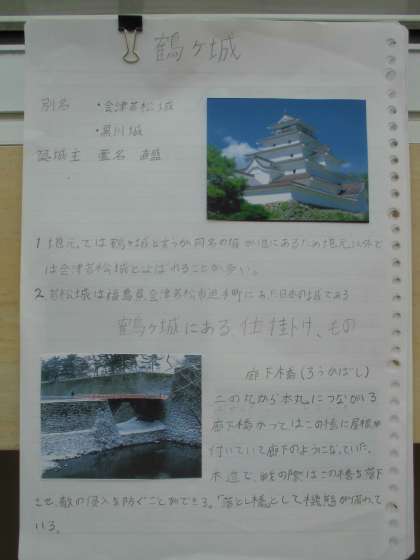 鶴ヶ城
別名 ・会津若松城
・黒川城
築城主 蘆名 直盛
1 地元では鶴ヶ城と言うが同名の城が他にあるため地元以外で
は会津若松城とよばれることが多い。
2 若松城は福島県会津若松市追手町にあった日本の城である
鶴ヶ城にある、仕掛け、もの
廊下橋(ろうかばし)
二の丸から本丸につながる
廊下橋かつてはこの橋に屋根が
付いていて廊下のようになっていた。
木造で、戦の際はこの橋を落下
させ、敵の侵入を防ぐことができる。「落とし橋」として機能が備わって
いる。